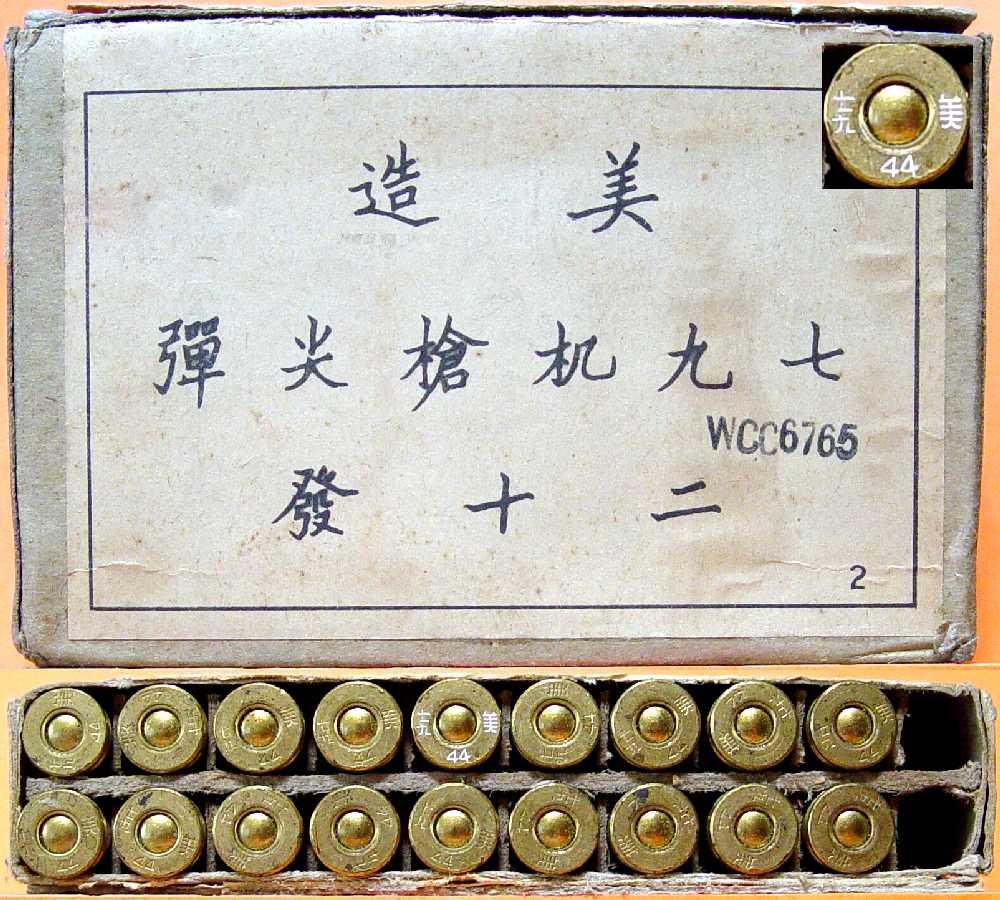 美造
七九机槍尖彈
WCC6765
二十發
2
七九 美
44
七九 美
44